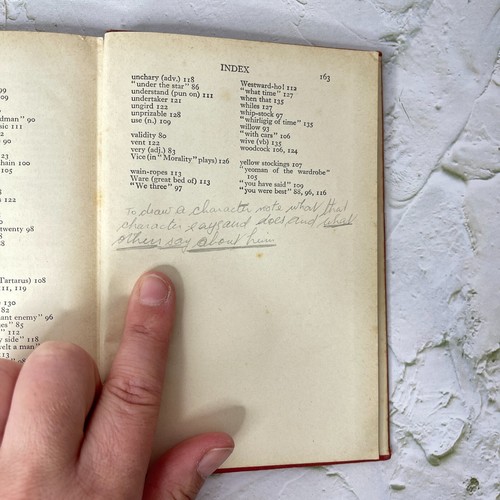 99
09
dman" 90
sic 111
23
hain 100
105
twenty 98
Tartarus) 108
11, 119
130
82
ant enemy" 96
es" 85
" 112
y side" 118
velt a man"
113
INDEX 163
unchary (adv.) 118
"under the star" 86
understand (pun on) 111
undertaker 121
ungird 122
unprizable 128
use (n.) 109
validity 80
vent 122
very (adj.) 83
Vice (in "Morality" plays) 126
wain-ropes 113
Ware (great bed of) 113
"We three" 97
Westward-ho! 112
"what time" 127
when that 135
whiles 127
whip-stock 97
"whirligig of time" 135
willow 93
"with cars" 106
wive (vb) 135
woodcock 106, 124
yellow stockings 107
"yeoman of the wardrobe"
105
"you have said" 109
"you were best" 88, 96, 116
To draw a character note what that
character says and does and what
others say about him